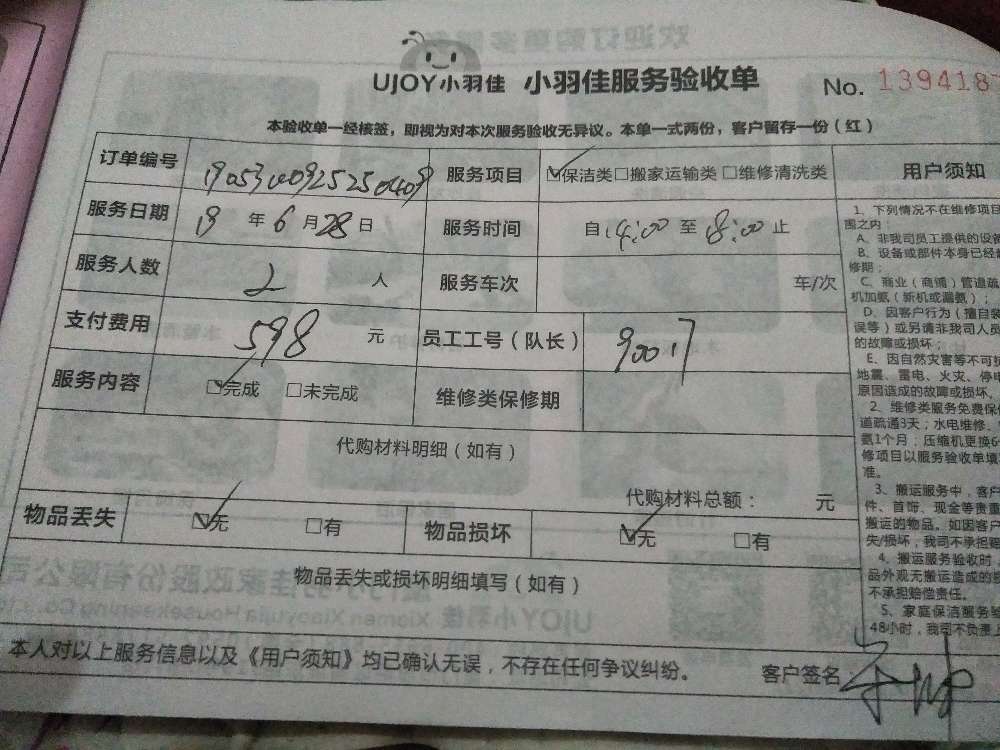 UJOY小羽佳 小羽佳服务验收单 No. 139418
本验收单一经核签，即视为对本次服务验收无异议。本单一式两份，客户留存一份（红）
订单编号 服务项目 ☑保洁类□搬家运输类□维修清洗类
服务日期 19 年 6 月 28 日 服务时间 自 14:00 至 18:00 止
服务人数 2 人 服务车次 车/次
支付费用 598 元 员工工号（队长） 90017
服务内容 ☑完成 □未完成 维修类保修期
代购材料明细（如有）
代购材料总额： 元
物品丢失 ☑无 □有 物品损坏 ☑无 □有
物品丢失或损坏明细填写（如有）
本人对以上服务信息以及《用户须知》均已确认无误，不存在任何争议纠纷。 客户签名
用户须知
1、下列情况不在维修项目
围之内：
A、非我司员工提供的设备
B、设备或部件本身已经
修期；
C、商业（商铺）管道疏
机加氨（新机或漏氨）；
D、因客户行为（擅自装
误等）或另请非我司人员
的故障或损坏；
E、因自然灾害等不可抗
地震、雷电、火灾、停电
原因造成的故障或损坏。
2、维修类服务免费保
道疏通3天；水电维修、
氨1个月；压缩机更换6
修项目以服务验收单填
准。
3、搬运服务中，客户
件、首饰、现金等贵重
搬运的物品。如因客户
失/损坏，我司不承担赔
4、搬运服务验收时，
品外观无搬运造成的
不承担赔偿责任。
5、家庭保洁服务
48小时，我司不负责